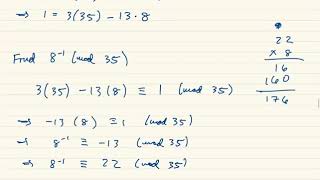 ⇒ 1 = 3(35) - 13·8
Find 8⁻¹ (mod 35)
3(35) - 13(8) ≡ 1 (mod 35)
⇒ -13(8) ≡ 1 (mod 35)
⇒ 8⁻¹ ≡ -13 (mod 35)
⇒ 8⁻¹ ≡ 22 (mod 35)
22
x 8
16
160
176